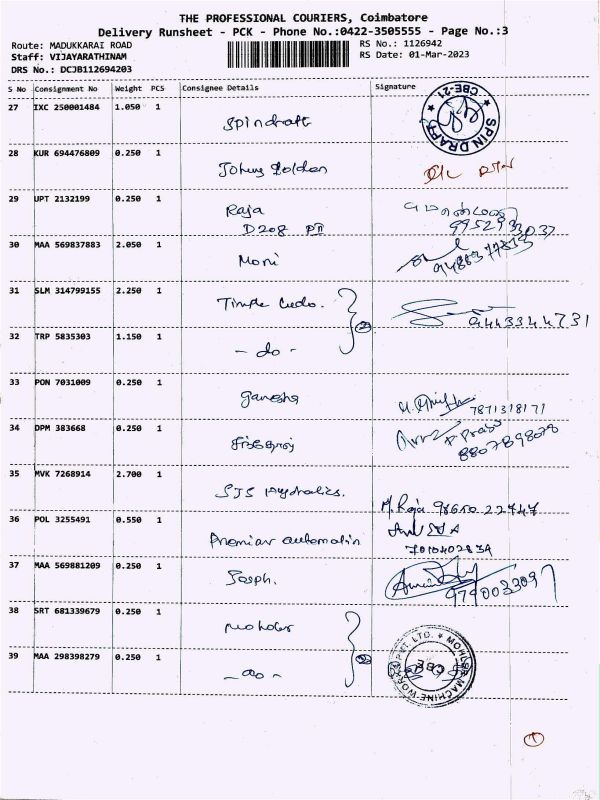 THE PROFESSIONAL COURIERS, Coimbatore
Delivery Runsheet - PCK - Phone No.:0422-3505555 - Page No.:3
Route: MADUKKARAI ROAD
RS No.: 1126942
Staff: VIJAYARATHINAM
RS Date: 01-Mar-2023
DRS No.: DCJB112694203
S No Consignment No Weight PCS Consignee Details Signature
27 IXC 250001484 1.050 1
Spindraft
SPIN DRAFT CBE-21
28 KUR 694476809 0.250 1
29 UPT 2132199 0.250 1
Raja
D208
9952933037
30 MAA 569837883 2.050 1
Moni
31 SLM 314799155 2.250 1
9443344731
32 TRP 5835303 1.150 1
- do -
33 PON 7031009 0.250 1
Ganesha
7871318171
34 DPM 383668 0.250 1
8807898078
35 MVK 7268914 2.700 1
SJS Hydralics.
M. Raja 98650 22747
36 POL 3255491 0.550 1
Premier automatin
37 MAA 569881209 0.250 1
Joseph.
9790033097
38 SRT 681339679 0.250 1
39 MAA 298398279 0.250 1
- do -
PVT. LTD. CBE